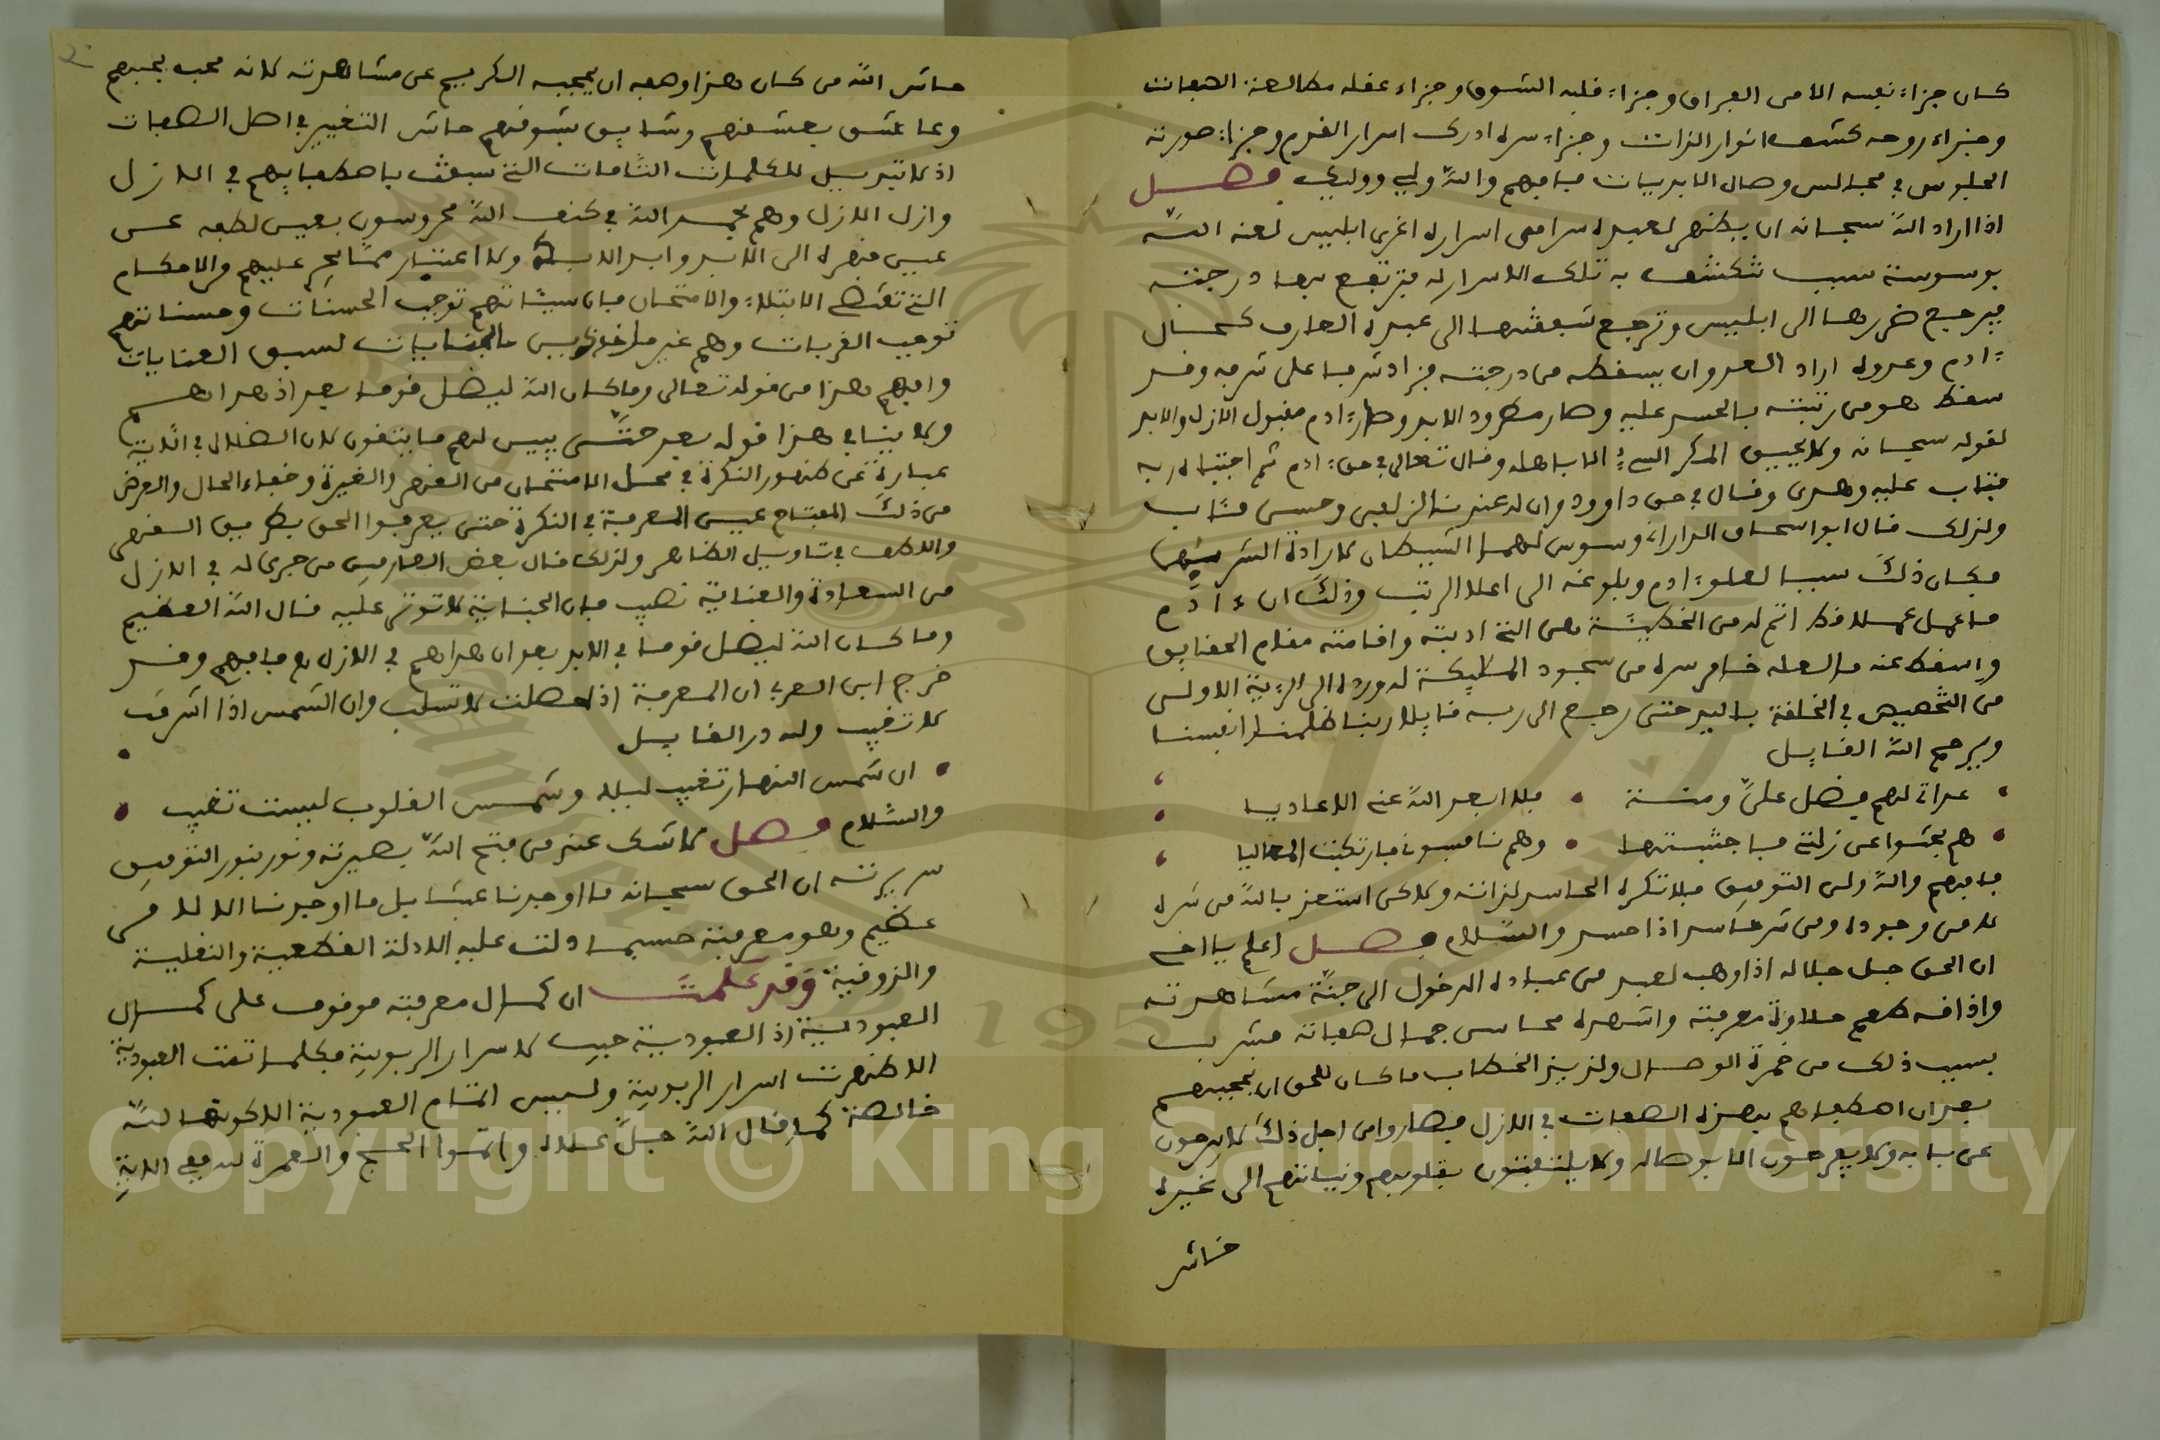 كان جزاء نفسه الامن الفراق وجزاء قلبه الشوق وجزاء عقله مطالعة الصفات
وجزاء روحه كشف انوار الذات وجزاء سره ادرك اسرار القدم وجزاء صورته
الجلوس في مجالس وصال الابديات فافهم والله ولي فصل
اذا اراد الله سبحانه ان يظهر لعبده سرا من اسراره اغرى ابليس لعنه الله
بوسوسة سبب تنكشف به تلك الاسرار له فترتفع بها درجته
فيرجع ضررها الى ابليس وترجع منفعتها الى عبده العارف كحال
ءادم وعدوه اراد العدو ان يسقطه من درجته فزاد شرفا على شرفه وقد
سقط هو من رتبته بالحسد عليه وصار مطرود الابد وصار ءادم مقبول الازل والابد
لقوله سبحانه ولا يحيق المكر السيء الا باهله وقال تعالى في حق ءادم ثم اجتباه ربه
فتاب عليه وهدى وقال في حق داوود وان له عندنا لزلفى وحسن مئاب
ولذلك قال ابو اسحاق وسوس لهما الشيطان لارادة الشر بهما
فكان ذلك سببا لعلو ءادم وبلوغه الى اعلا الرتب وذلك ان ءادم
ما عمل عملا قط اتم له من الخطيئة هي التي ادبته واقامته مقام الحقايق
واسقط عنه ما لعله خامر سره من سجود الملئكة له ورده الى الرتبة الاولى
من التخصيص في الخلقة باليد حتى رجع الى ربه قايلا ربنا ظلمنا انفسنا
ويرحم الله القايل
عداة لهم فضل علي ومنة فلا ابعد الله عني الاعاديا
هم بحثوا عن زلتي فاجتنبتها وهم نافسوني فارتكبت المعاليا
فافهم والله ولي التوفيق فلا تكره الحاسد لذاته ولاكن استعذ بالله من شره
لا من وجوده ومن شر حاسد اذا حسد والسلام فصل اعلم يا اخي
ان الحق جل جلاله اذا وهب لعبد من عباده الدخول الى جنة مشاهدته
واذاقه طعم حلاوة معرفته واشهده محاسن جمال صفاته فشرب
بسبب ذلك من خمرة الوصال ولذيذ الخطاب ما كان للحق ان يحجبهم
بعد ان اصطفاهم بهذه الصفات في الازل فصاروا من اجل ذلك لا يبرحون
عن بابه ولا يفرحون الا بوصاله ولا يلتفتون بقلوبهم ونياتهم الى غيره
حاشى
حاشى الله من كان هذا وصفه ان يحجبه الكريم عن مشاهدته لانه محب بحبهم
وعاشق بعشقهم وشايق بشوقهم حاشى التغيير في اهل الصفات
اذ لا تبديل للكلمات التامات التي سبقت باصطفايهم في الازل
وازل الازل وهم بحمد الله في كنف الله محروسون بعين لطفه عن
عين قهره الى الابد وابد الابد ولا اعتبار مما يجر عليهم من الاحكام
التي تقتضي الابتلاء والامتحان فان سيئاتهم توجب الحسنات وحسناتهم
توجب القربات وهم غير ماخوذين بالجنايات لسبق العنايات
وافهم هذا من قوله تعالى وما كان الله ليضل قوما بعد اذ هداهم
ولا ينافي هذا قوله بعد حتى يبين لهم ما يتقون لان الضلال في الاية
عبارة عن ظهور النكرة في محل الامتحان من القهر والغيرة وخفاء الحال والغرض
من ذلك المفتاح عين المعرفة في النكرة حتى يعرفوا الحق بطريق القهر
واللطف في تاويل الظاهر ولذلك قال بعض العارفين من جرى له في الازل
من السعادة والعناية نصيب فان الجناية لا توثر عليه قال الله العظيم
وما كان الله ليضل قوما في الابد بعد ان هداهم في الازل فافهم وقد
خرج ابن العربي ان المعرفة اذا حصلت لا تسلب وان الشمس اذا اشرقت
لا تغيب ولله در القايل
ان شمس النهار تغيب ليلا وشمس القلوب ليست تغيب
والسلام فصل لا شك عند من فتح الله بصيرته ونور بنور التوفيق
سريرته ان الحق سبحانه ما اوجدنا عبثا بل ما اوجدنا الا لامر
عظيم وهو معرفته حسبما دلت عليه الادلة القطعية والنقلية
والذوقية وقد علمت ان كمال معرفته موقوف على كمال
العبودية اذ العبودية حبيب لاسرار الربوبية فكلما تمت العبودية
الا ظهرت اسرار الربوبية وليس اتمام العبودية الا كونها لله
خالصة كما قال الله جل علاه واتموا الحج والعمرة لله الاية
Copyright © King Saud University
1957